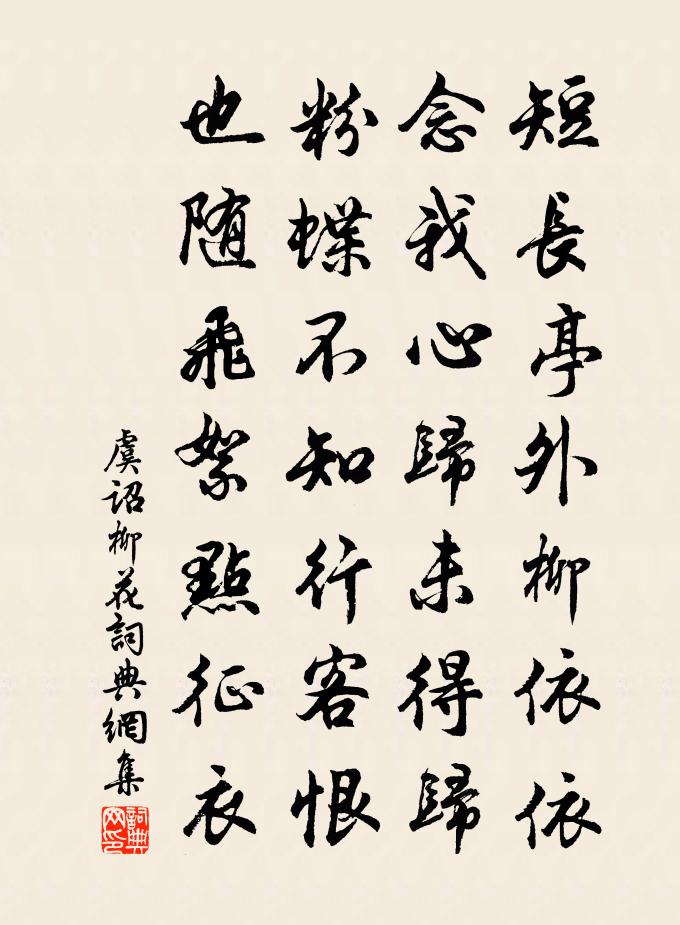 短長亭外柳依依
念我心歸未得歸
粉蝶不知行客恨
也随飛絮點征衣
虞詔柳花詞典網集
詞典网印